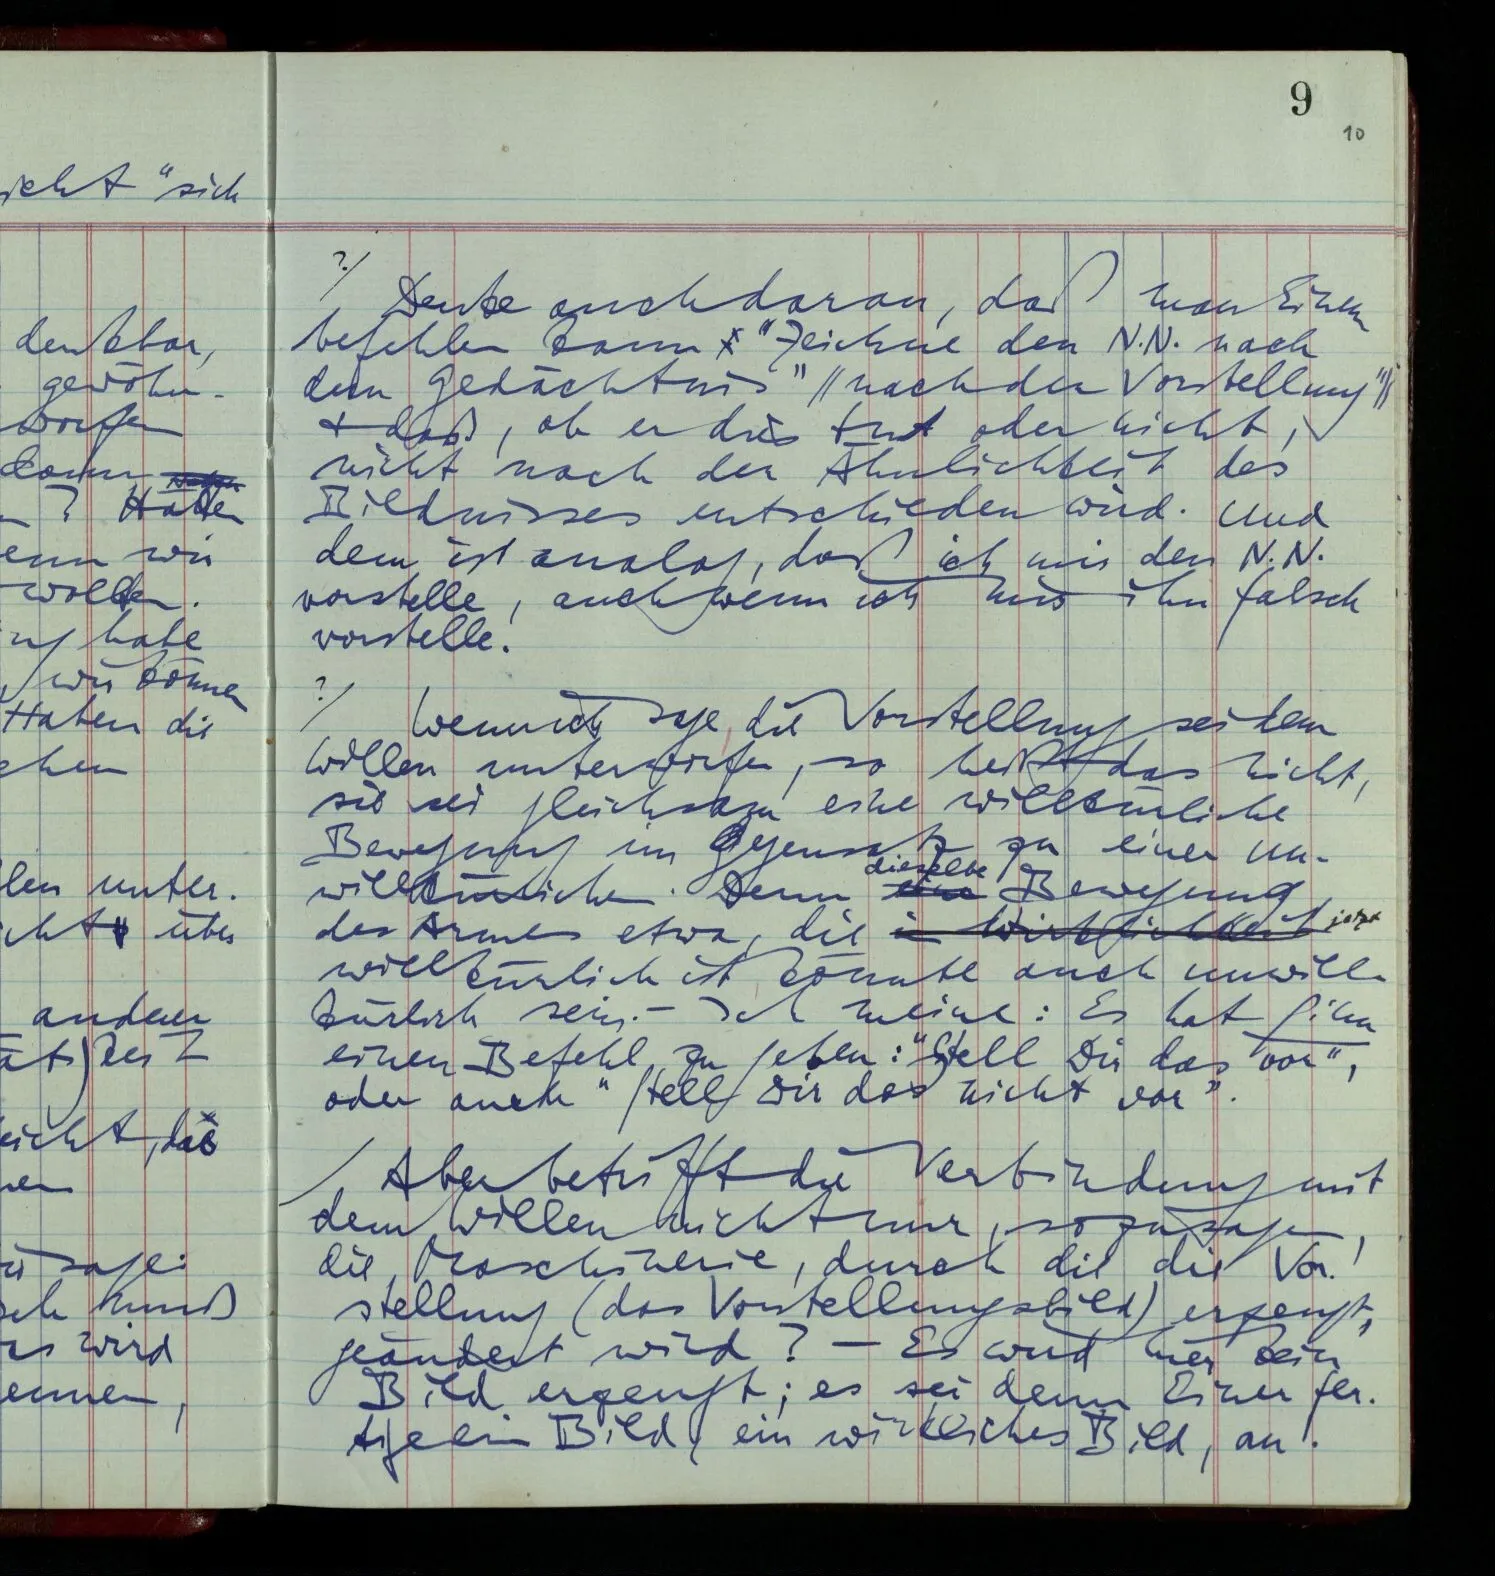 icht "sich
denkbar,
gewöhn-
worfen
kann
? Hätten
enn wir
wollten.
habe
, wir können
Haben die
chen
len unter-
über
anderen
Zeit
eicht, das
nen
sage:
ich muß
wird
ennen,
9
10
?/
Denke auch daran, daß man Einem
befehlen kann "Zeichne den N.N. nach
dem Gedächtnis" // nach der Vorstellung" //
+ daß, ob er dies tut oder nicht,
nicht nach der Ähnlichkeit des
Bildnisses entschieden wird. Und
dem ist analog, daß ich mir den N.N.
vorstelle, auch wenn ich mir ihn falsch
vorstelle.
?/
Wenn ich sage, die Vorstellung sei dem
Willen unterworfen, so heißt das nicht,
sie sei gleichsam eine willkürliche
Bewegung im Gegensatz zu einer un-
willkürlichen. Denn eine dieselbe Bewegung
des Armes etwa, die in Wirklichkeit jetzt
willkürlich ist könnte auch unwill-
kürlich sein. – Ich meine: Es hat Sinn
einen Befehl zu geben: "Stell Dir das vor",
oder auch "Stell Dir das nicht vor".
/ Aber betrifft die Verbindung mit
dem Willen nicht nur, sozusagen,
die Maschinerie, durch die die Vor-
stellung (das Vorstellungsbild) erzeugt,
geändert wird? – Es wird hier kein
Bild erzeugt; es sei denn Einer fer-
tige ein Bild, ein wirkliches Bild, an.